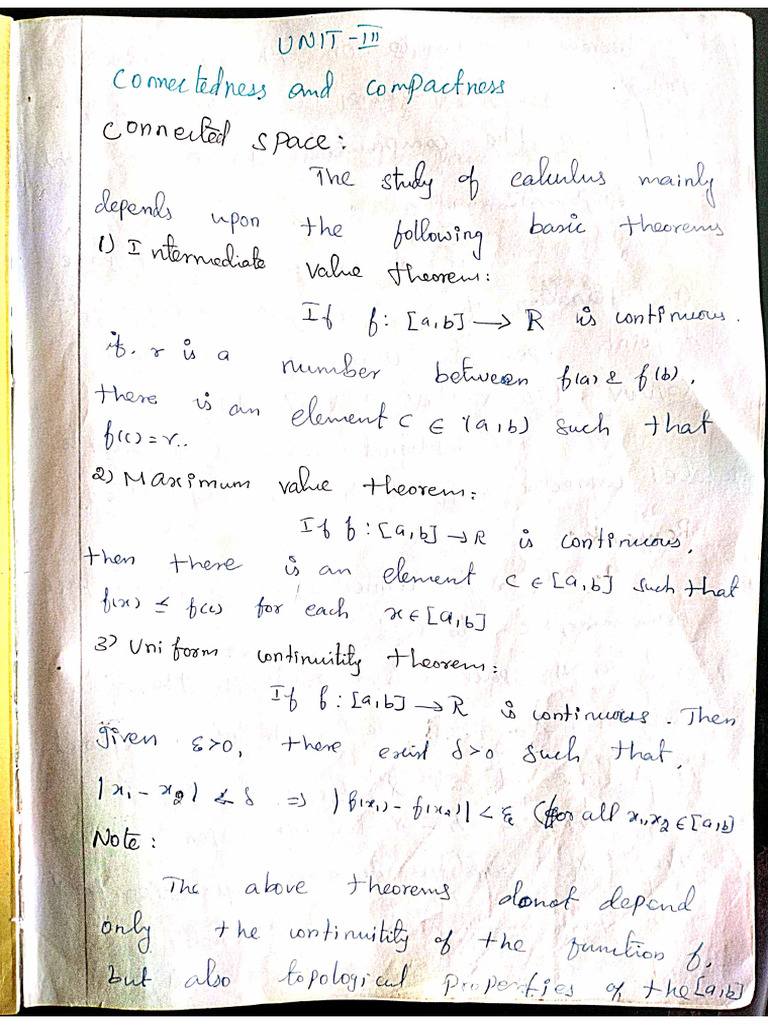 UNIT-III
Connectedness and compactness
Connected space:
The study of calculus mainly
depends upon the following basic theorems
1) Intermediate value theorem:
If f: [a,b] → R is continuous.
if. r is a number between f(a) & f(b),
there is an element c ∈ (a,b) such that
f(c)=r..
2) Maximum value theorem:
If f: [a,b] → R is continuous,
then there is an element c ∈ [a,b] such that
f(x) ≤ f(c) for each x ∈ [a,b]
3) Uniform continuitity theorem:
If f: [a,b] → R is continuous. Then
given ε>0, there exist δ>0 such that,
|x₁ - x₂| < δ ⇒ |f(x₁) - f(x₂)| < ε (for all x₁,x₂ ∈ [a,b]
Note:
The above theorems donot depend
only the continuitity of the function f,
but also topological properties of the [a,b]